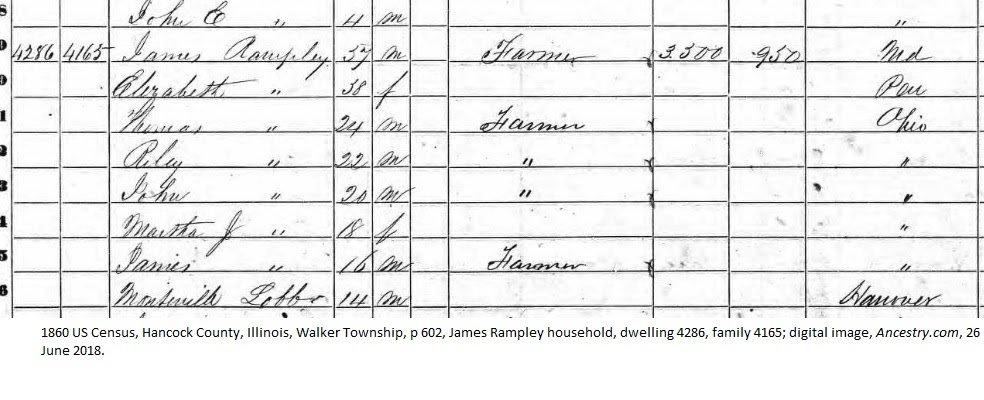 8 John E " 4 m "
9 4286 4165 James Rampley 57 m Farmer 3300 950 Md
0 Elizabeth " 58 f Pen
1 Thomas " 24 m Farmer Ohio
2 Riley " 22 m " "
3 John " 20 m " "
4 Martha J " 18 f "
5 James " 16 m Farmer "
6 14 m Hanover
1860 US Census, Hancock County, Illinois, Walker Township, p 602, James Rampley household, dwelling 4286, family 4165; digital image, Ancestry.com, 26
June 2018.